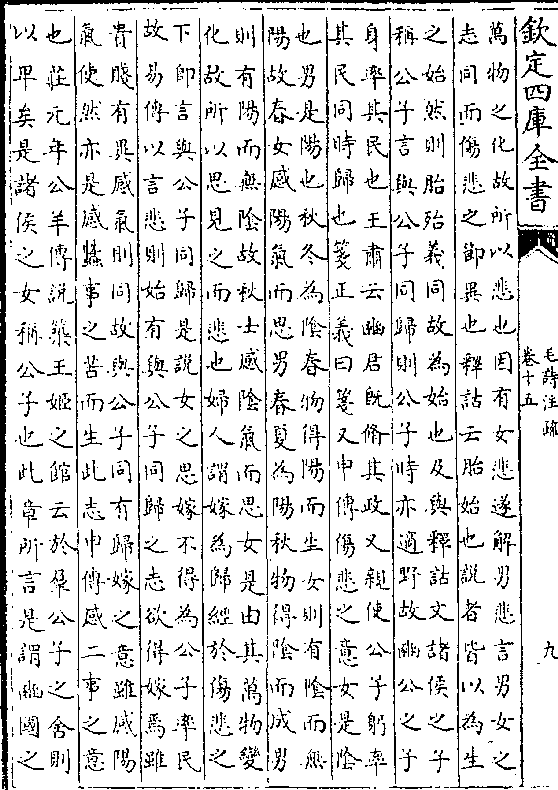 欽定四庫全書
毛詩注疏
卷十五
九
萬物之化故所以悲也因有女悲遂解男悲言男女之
志同而傷悲之節異也釋詁云胎始也説者皆以為生
之始然則胎殆義同故為始也及與釋詁文諸侯之子
稱公子言與公子同歸則公子時亦適野故豳公之子
身率其民也王肅云豳君既脩其政又親使公子躬率
其民同時歸也箋正義曰箋又申傳傷悲之意女是陰
也男是陽也秋冬為陰春物得陽而生女則有陰而無
陽故春女感陽氣而思男春夏為陽秋物得陰而成男
則有陽而無陰故秋士感陰氣而思女是由其萬物變
化故所以思見之而悲也婦人謂嫁為歸經於傷悲之
下即言與公子同歸是説女之思嫁不得為公子率民
故易傳以言悲則始有與公子同歸之志欲得嫁焉雖
貴賤有異感氣則同故與公子同有歸嫁之意雖感陽
氣使然亦是感蠶事之苦而生此志申傳感二事之意
也莊元年公羊傳説築王姬之館云於羣公子之舍則
以卑矣是諸侯之女稱公子也此章所言是謂豳國之